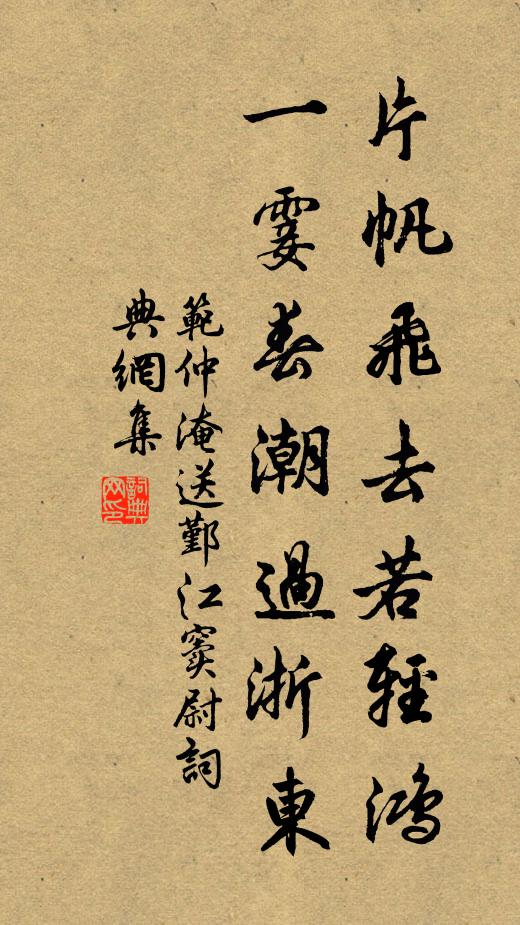 片帆飛去若輕鴻
一霎春潮過浙東
範仲淹送鄞江竇尉詞
典網集
詞典網印